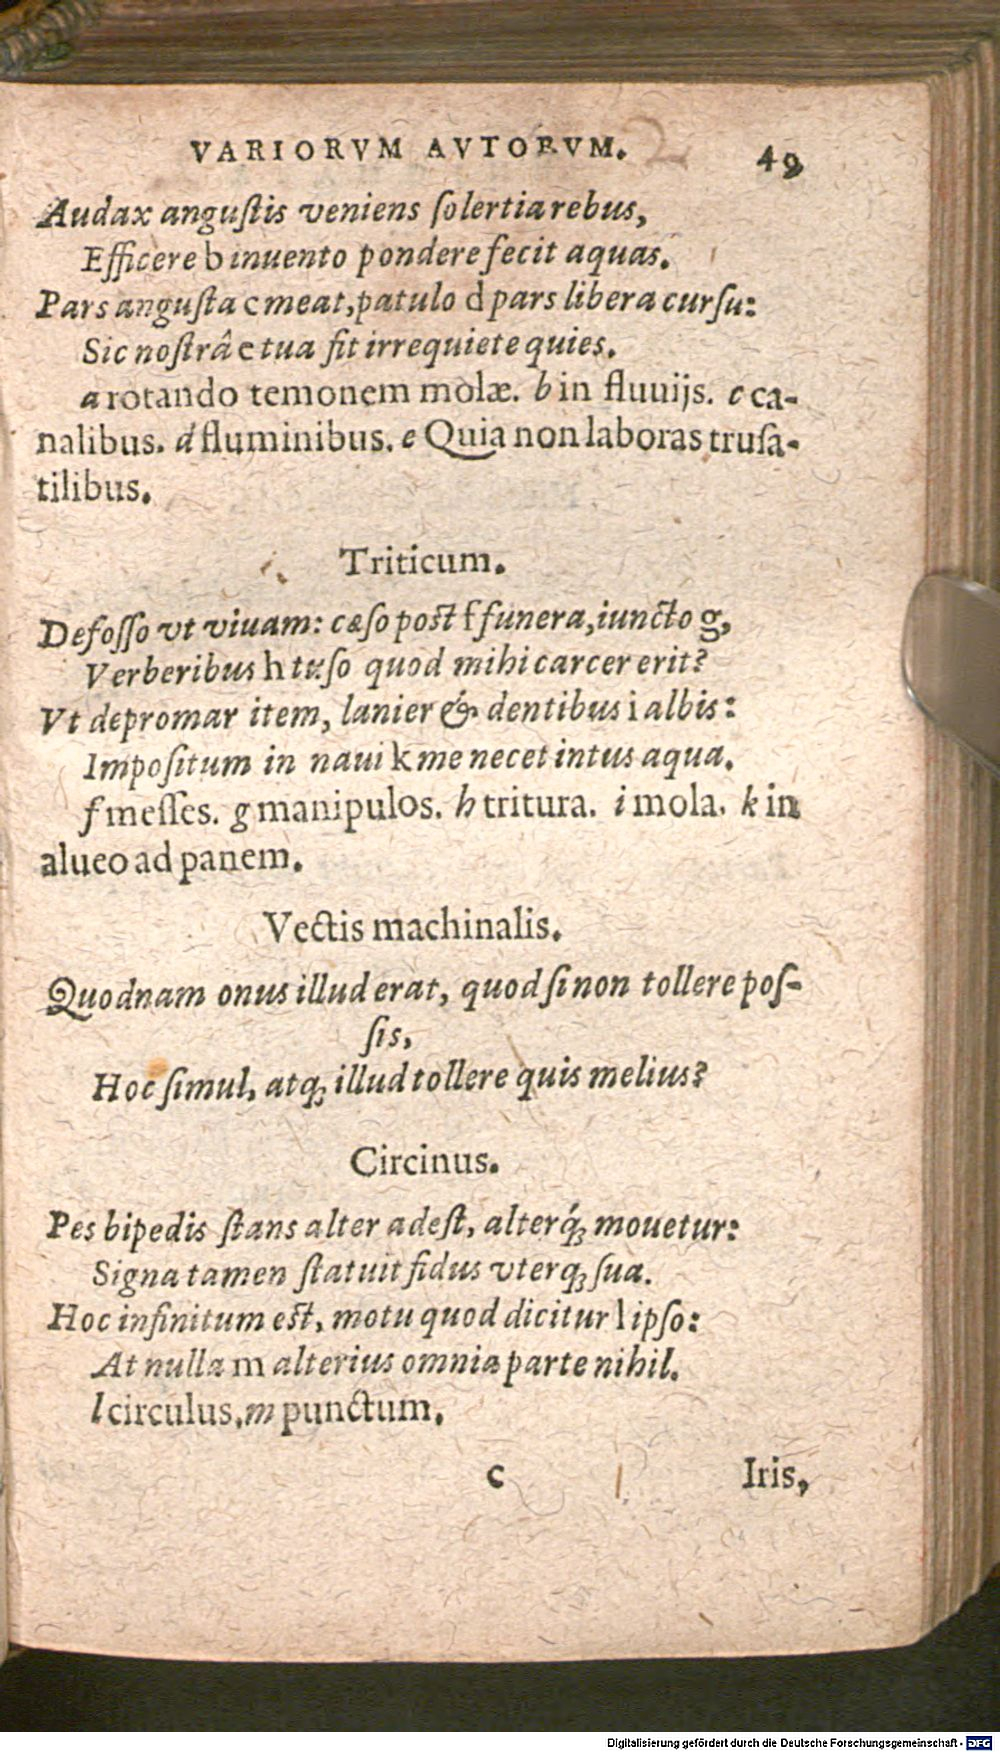 VARIORVM AVTORVM. 49
Audax angustis veniens solertia rebus,
Efficere b inuento pondere fecit aquas.
Pars angusta c meat, patulo d pars libera cursu:
Sic nostrâ e tua fit irrequiete quies.
a rotando temonem molæ. b in fluuijs. c ca-
nalibus. d fluminibus. e Quia non laboras trusa-
tilibus.
Triticum.
Defosso vt viuam: cæso post f funera, iuncto g,
Verberibus h tuso quod mihi carcer erit?
Vt depromar item, lanier & dentibus i albis:
Impositum in naui k me necet intus aqua.
f messes. g manipulos. h tritura. i mola. k in
alueo ad panem.
Vectis machinalis.
Quodnam onus illud erat, quod si non tollere pos-
sis,
Hoc simul, atq; illud tollere quis melius?
Circinus.
Pes bipedis stans alter adest, alterq́; mouetur:
Signa tamen statuit fidus vterq; sua.
Hoc infinitum est, motu quod dicitur l ipso:
At nulla m alterius omnia parte nihil.
l circulus, m punctum.
c Iris,
Digitalisierung gefördert durch die Deutsche Forschungsgemeinschaft - DFG